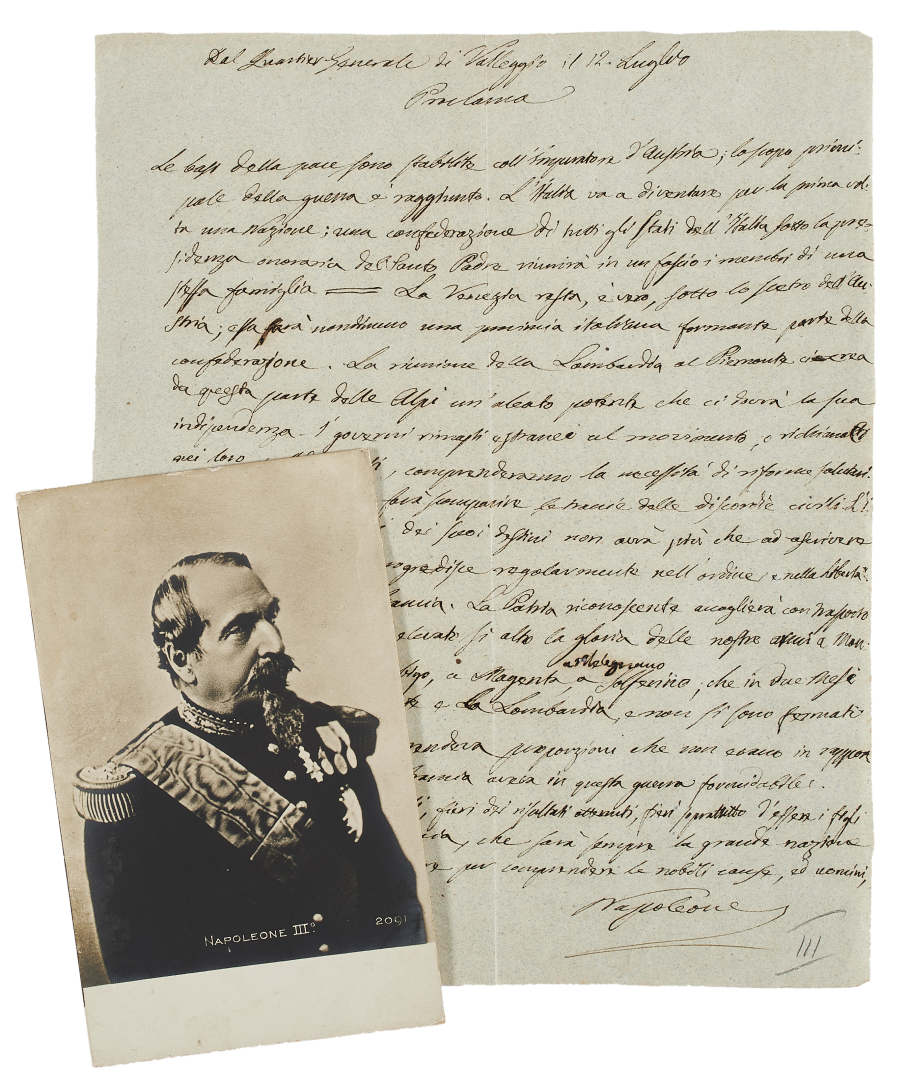 Dal Quartier-Generale di Valleggio il 12. Luglio
Proclama
Le basi della pace sono stabilite coll'imperatore d'Austria; lo scopo princi-
pale della guerra è raggiunto. L'Italia va a diventare per la prima vol-
ta una Nazione; una confederazione di tutti gli Stati dell'Italia sotto la pre-
sidenza onoraria del Santo Padre riunirà in un fascio i membri di una
stessa famiglia == La Venezia resta, è vero, sotto lo scetro dell'Au-
stria; essa sarà nondimeno una provincia italiana formante parte della
confederazione. La riunione della Lombardia al Piemonte ci crea
da questa parte delle Alpi un'aleato potente che ci dovrà la sua
indipendenza. I governi rimasti estranei al movimento, o richiamati
nei loro, comprenderanno la necessità di riforme salutari.
farà scomparire le traccie delle discordie civili. L'I-
dei suoi destini non avrà più che ad ascrivere
progredisce regolarmente nell'ordine, e nella libertà.
Francia. La Patria riconoscente accoglierà con trasporto
elevato sì alto la gloria delle nostre armi a Mon-
a Magenta, a Melegnano
a Solferino, che in due mesi
e la Lombardia, e non si sono fermati
proporzioni che non erano in rappor
Francia aveva in questa guerra formidabile.
fieri dei risultati ottenuti, fieri soprattutto d'essere i figli
che sarà sempre la grande nazione
per comprendere le nobili cause, ed uomini,
Napoleone
III
NAPOLEONE IIIº
2091